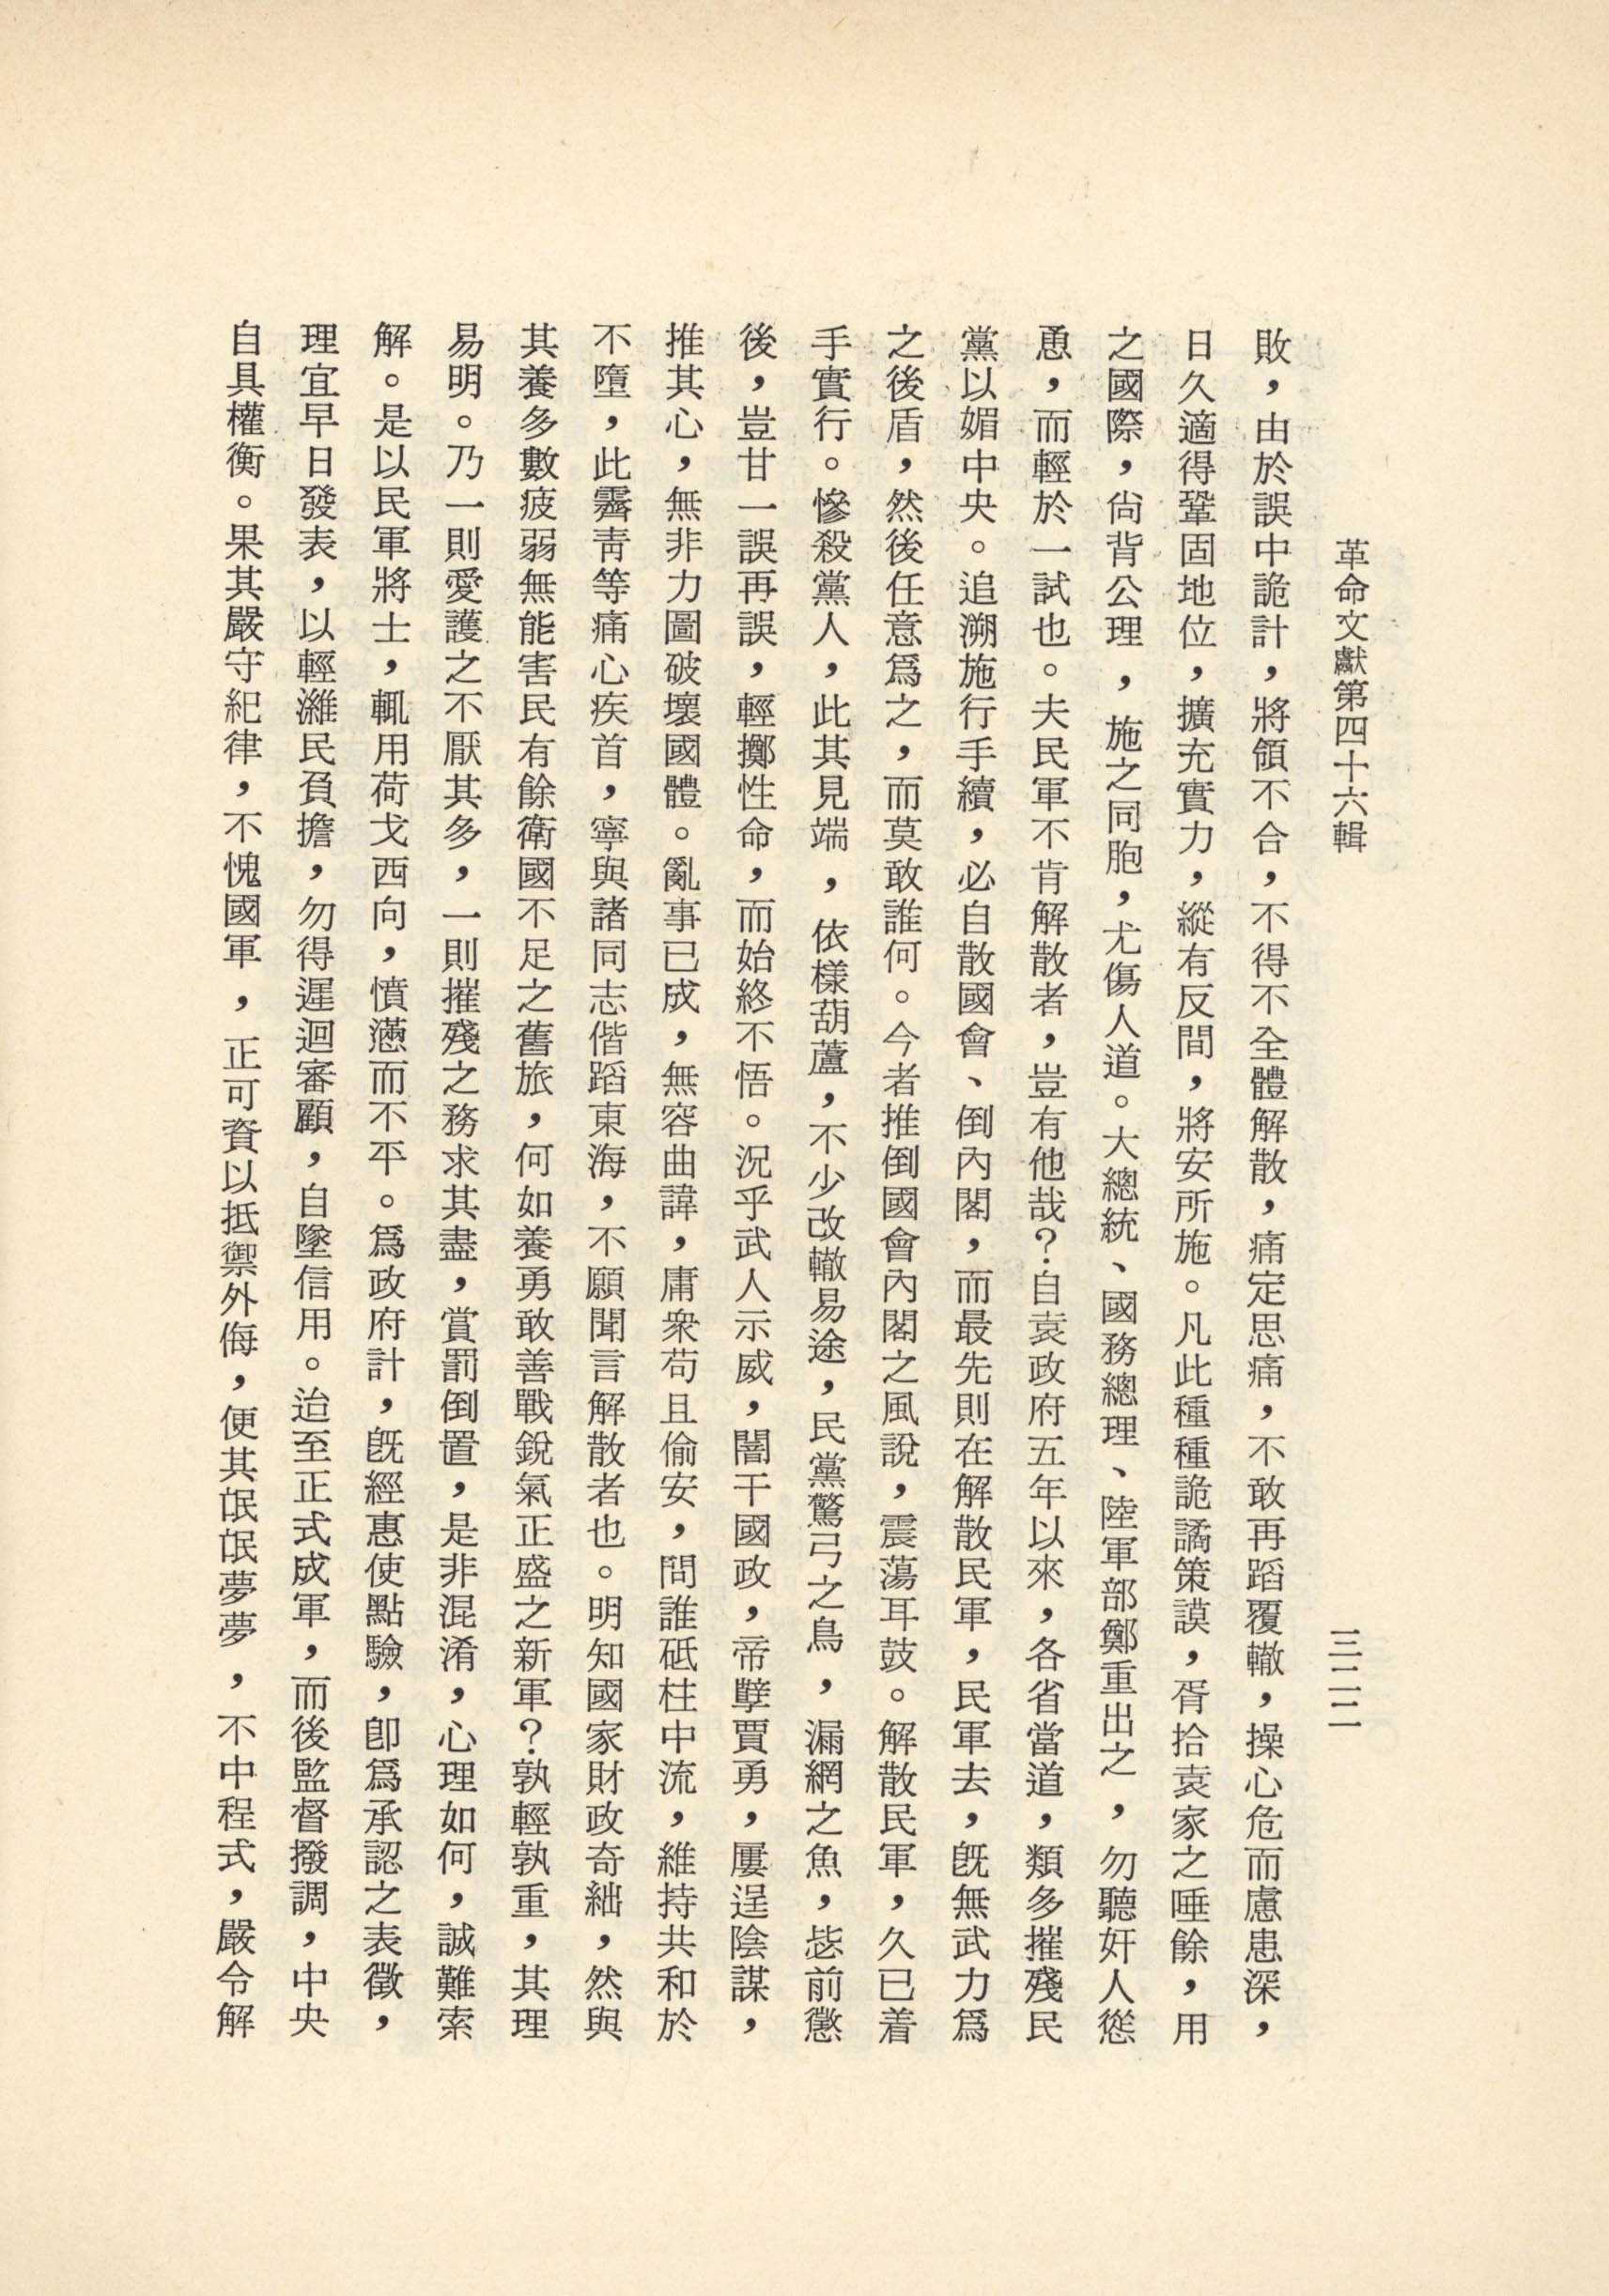 革命文獻第四十六輯
三二二
敗，由於誤中詭計，將領不合，不得不全體解散，痛定思痛，不敢再蹈覆轍，操心危而慮患深，
日久適得鞏固地位，擴充實力，縱有反間，將安所施。凡此種種詭譎策謨，胥拾袁家之唾餘，用
之國際，尙背公理，施之同胞，尤傷人道。大總統、國務總理、陸軍部鄭重出之，勿聽奸人慫
恿，而輕於一試也。夫民軍不肯解散者，豈有他哉？自袁政府五年以來，各省當道，類多摧殘民
黨以媚中央。追溯施行手續，必自散國會、倒內閣，而最先則在解散民軍，民軍去，旣無武力爲
之後盾，然後任意爲之，而莫敢誰何。今者推倒國會內閣之風說，震蕩耳鼓。解散民軍，久已着
手實行。慘殺黨人，此其見端，依樣葫蘆，不少改轍易途，民黨驚弓之鳥，漏網之魚，毖前懲
後，豈甘一誤再誤，輕擲性命，而始終不悟。況乎武人示威，闇干國政，帝孽賈勇，屢逞陰謀，
推其心，無非力圖破壞國體。亂事已成，無容曲諱，庸衆苟且偷安，問誰砥柱中流，維持共和於
不墮，此霽青等痛心疾首，寧與諸同志偕蹈東海，不願聞言解散者也。明知國家財政奇絀，然與
其養多數疲弱無能害民有餘衛國不足之舊旅，何如養勇敢善戰銳氣正盛之新軍？孰輕孰重，其理
易明。乃一則愛護之不厭其多，一則摧殘之務求其盡，賞罰倒置，是非混淆，心理如何，誠難索
解。是以民軍將士，輒用荷戈西向，憤懣而不平。爲政府計，旣經惠使點驗，卽爲承認之表徵，
理宜早日發表，以輕濰民負擔，勿得遲迴審顧，自墜信用。迨至正式成軍，而後監督撥調，中央
自具權衡。果其嚴守紀律，不愧國軍，正可資以抵禦外侮，便其氓氓夢夢，不中程式，嚴令解